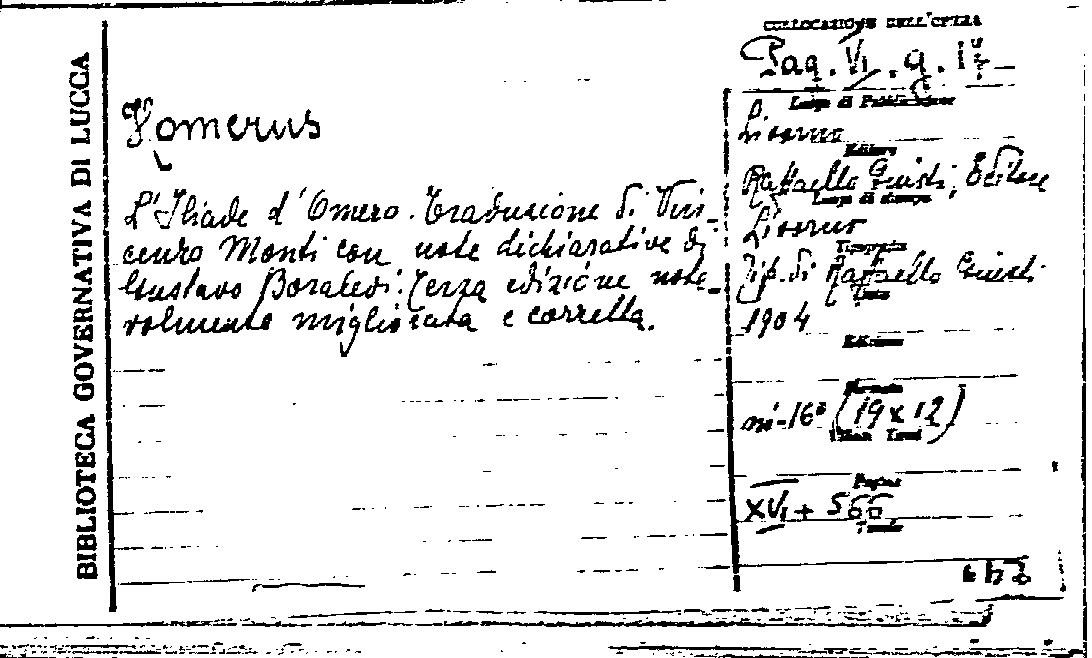 BIBLIOTECA GOVERNATIVA DI LUCCA
Homerus
L'Iliade d'Omero. Traduzione di Vin-
cenzo Monti con note dichiarative di
Gustavo Boralevi. Terza edizione note-
volmente migliorata e corretta.
COLLOCAZIONE DELL'OPERA
Pag. VI. g.
Luogo di Pubblicazione
Livorno
Editore
Raffaello Giusti, Editore
Luogo di stampa
Livorno
Tipografia
Tip. di Raffaello Giusti
1904
Edizione
Formato
in-16° (19 x 12)
Pagine
XVI + 566